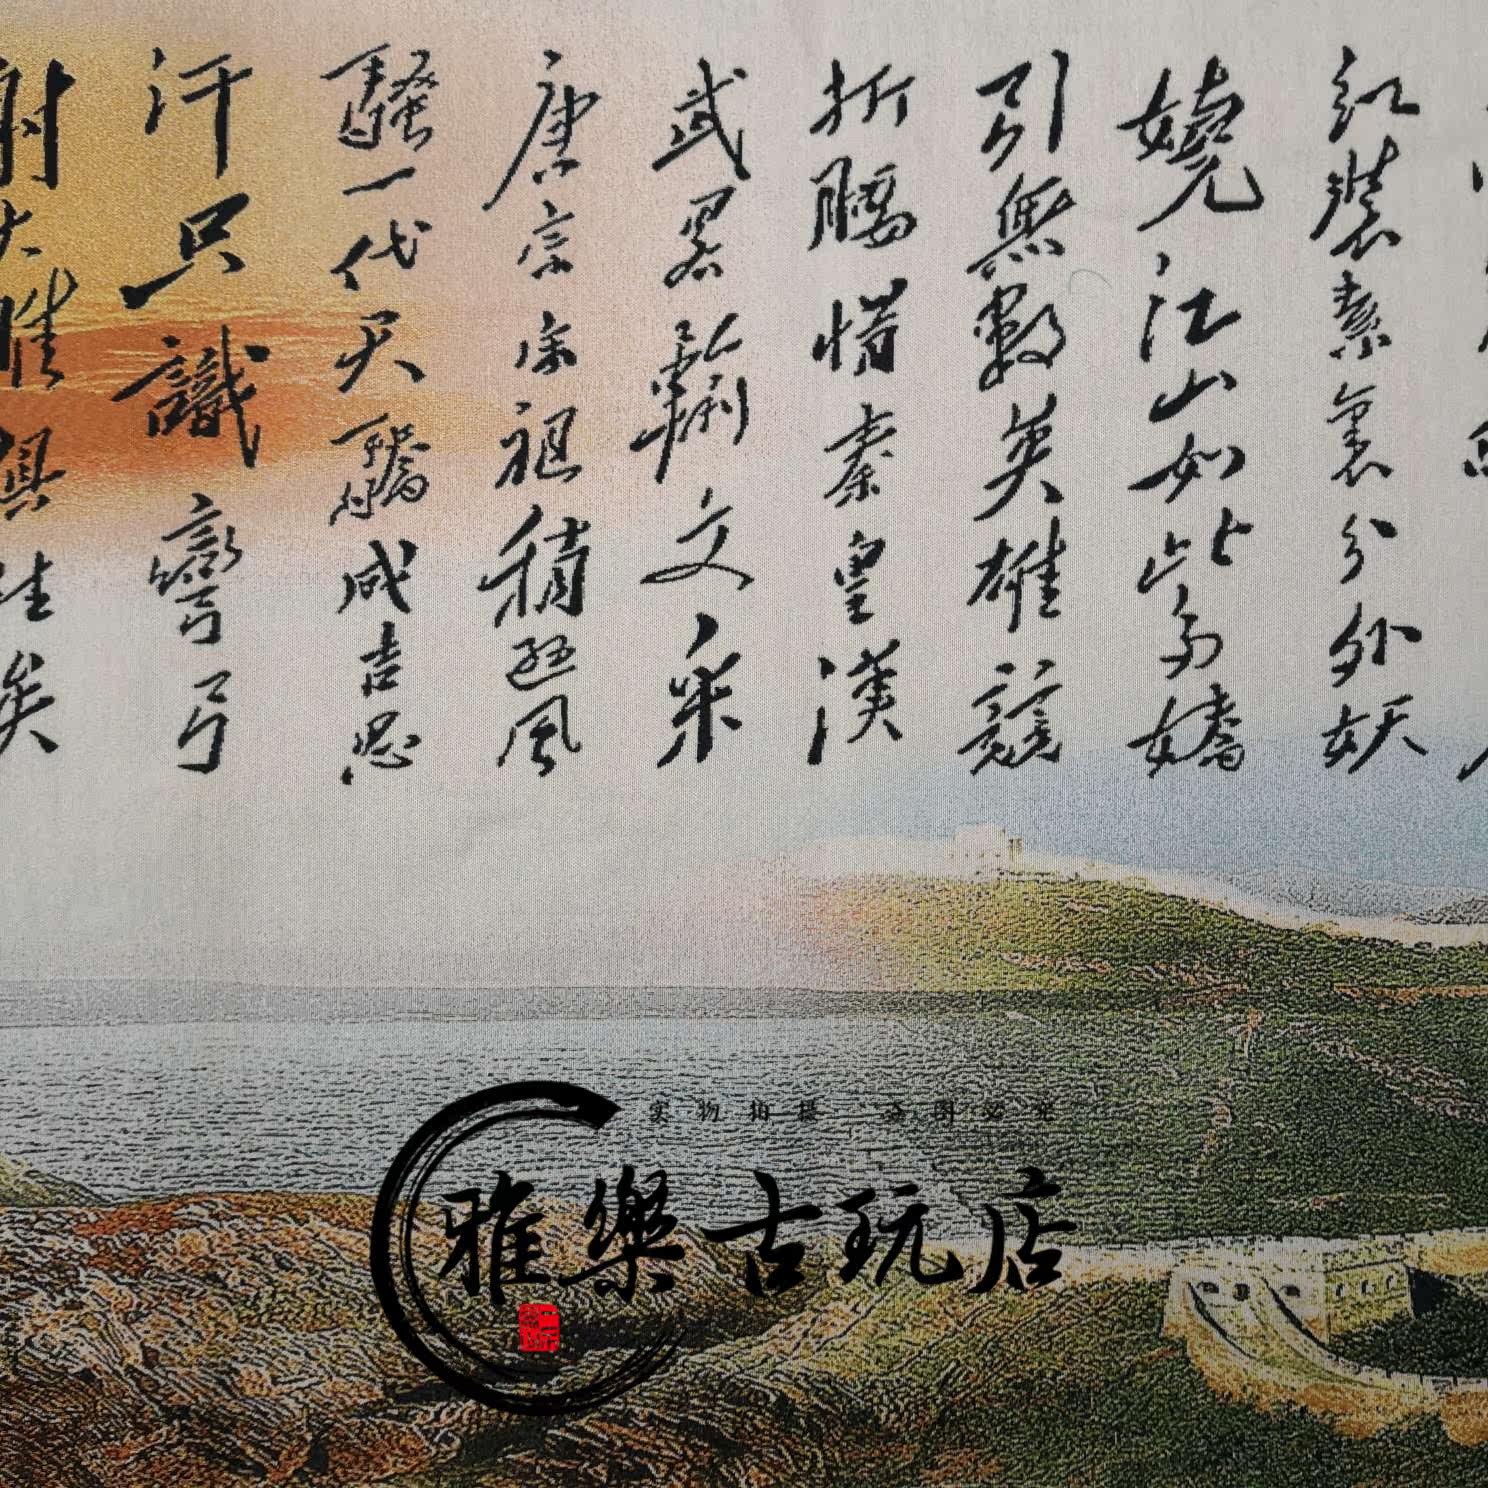 红裝素裹分外妖
嬈江山如此多嬌
引無數英雄競
折腰惜秦皇漢
武畧輸文采
唐宗宋祖稍遜風
騷一代天驕成吉思
汗只識彎弓
射大雕俱往矣
实物拍摄 盗图必究
雅樂古玩店